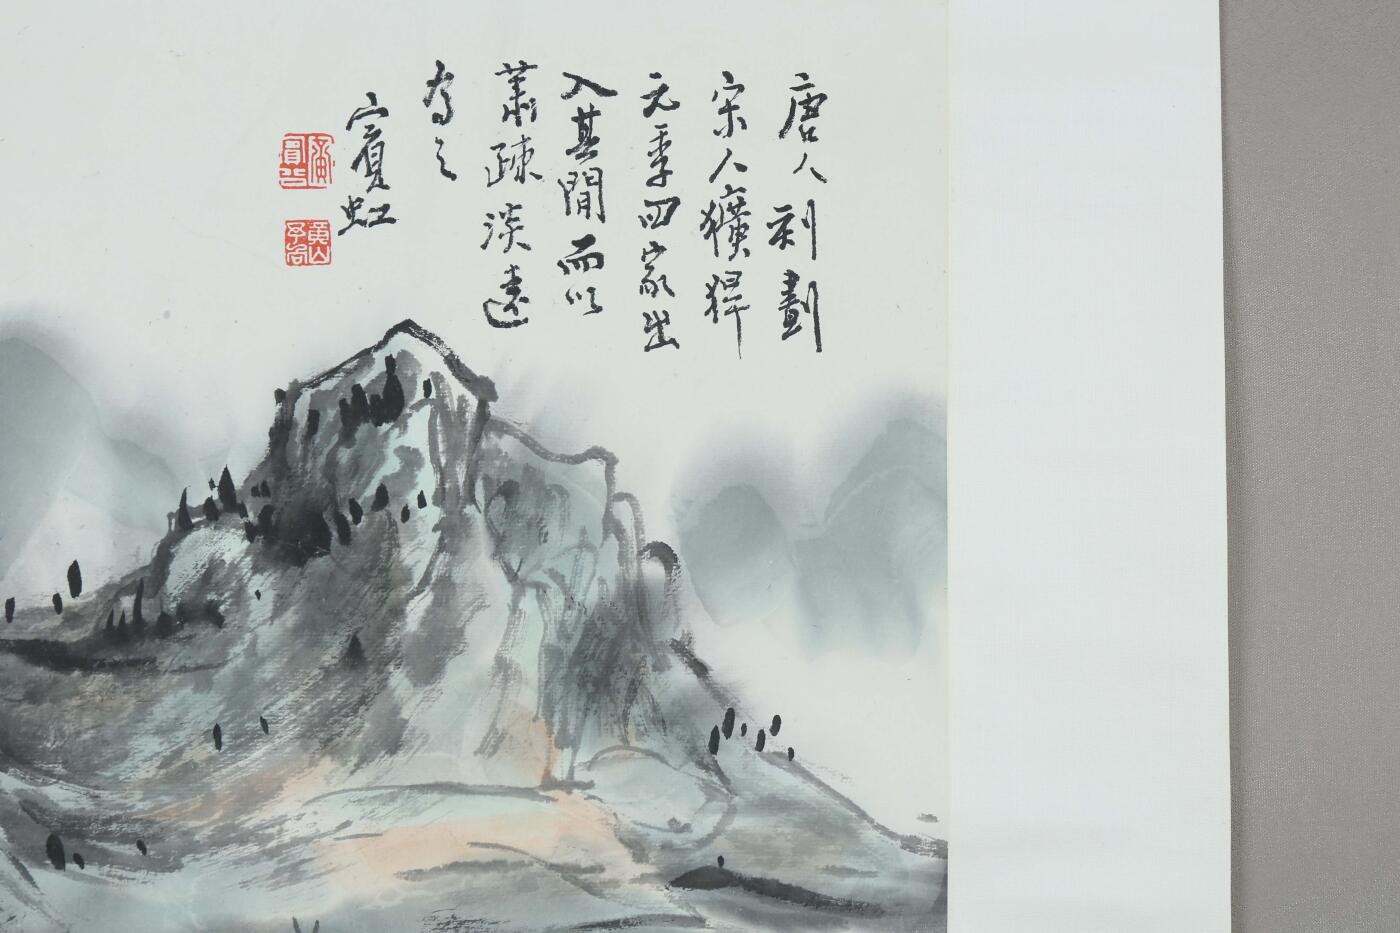 唐人刻劃
宋人獷猂
元季四家出
入其間而以
蕭疎淡遠
為之
賓虹
黃賓虹
黃山予向